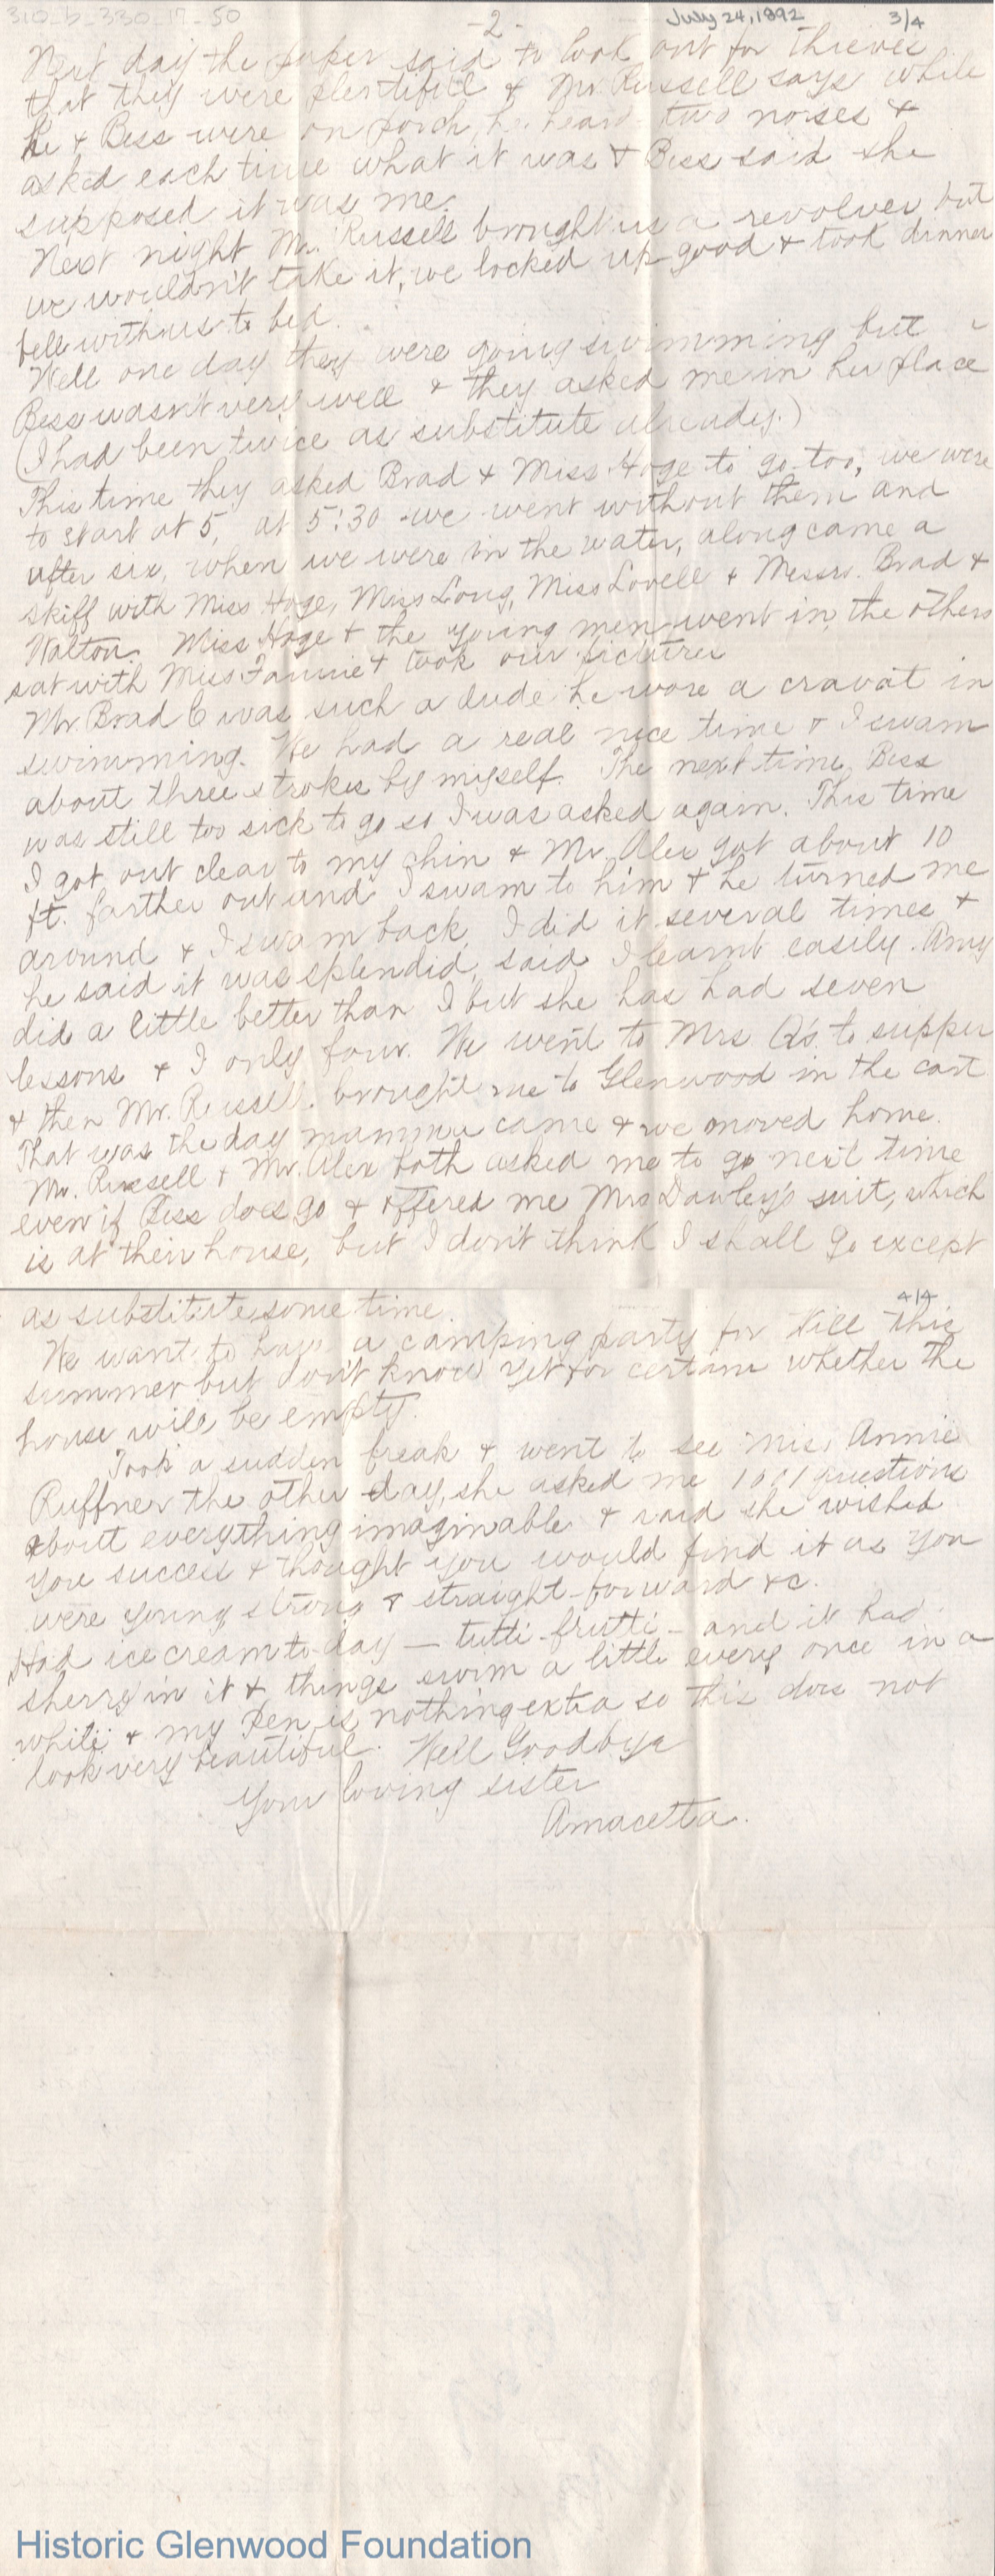 310_b_330_17_50
-2-
July 24, 1892
3/4
Next day the paper said to look out for thieves
that they were plentiful & Mr. Russell says while
he & Bess were on porch, he heard two noises &
asked each time what it was & Bess said she
supposed it was me.
Next night Mr. Russell brought us a revolver but
we wouldn't take it, we locked up good & took dinner
bell with us to bed.
Well one day they were going swimming but
Bess wasn't very well & they asked me in her place
(I had been twice as substitute already.)
This time they asked Brad & Miss Hoge to go too, we were
to start at 5, at 5:30 we went without them and
after six, when we were in the water, along came a
skiff with Miss Hoge, Miss Long, Miss Lovell & Messrs. Brad &
Walton. Miss Hoge & the young men went in, the others
sat with Miss Fannie & took our pictures
Mr. Brad C was such a dude he wore a cravat in
swimming. We had a real nice time & I swam
about three strokes by myself. The next time Bess
was still too sick to go so I was asked again. This time
I got out clear to my chin & Mr. Alex got about 10
ft. farther out and I swam to him & he turned me
around & I swam back, I did it several times &
he said it was splendid, said I learnt easily. Amy
did a little better than I but she has had seven
lessons & I only four. We went to Mrs. Q's to supper
& then Mr. Russell brought me to Glenwood in the cart
That was the day mamma came & we moved home.
Mr. Russell & Mr. Alex both asked me to go next time
even if Bess does go & offered me Mrs Dawley's suit, which
is at their house, but I don't think I shall go except
4/4
as substitute some time.
We want to have a camping party for Kill this
summer but don't know yet for certain whether the
house will be empty.
Took a sudden freak & went to see Miss Annie
Ruffner the other day, she asked me 1001 questions
about everything imaginable & said she wished
you success & thought you would find it as you
were young, strong & straight-forward &c.
Had ice cream to-day — tutti-frutti — and it had
sherry in it & things swim a little every once in a
while & my pen is nothing extra so this does not
look very beautiful. Well Goodbye
Your loving sister
Amacetta.
Historic Glenwood Foundation